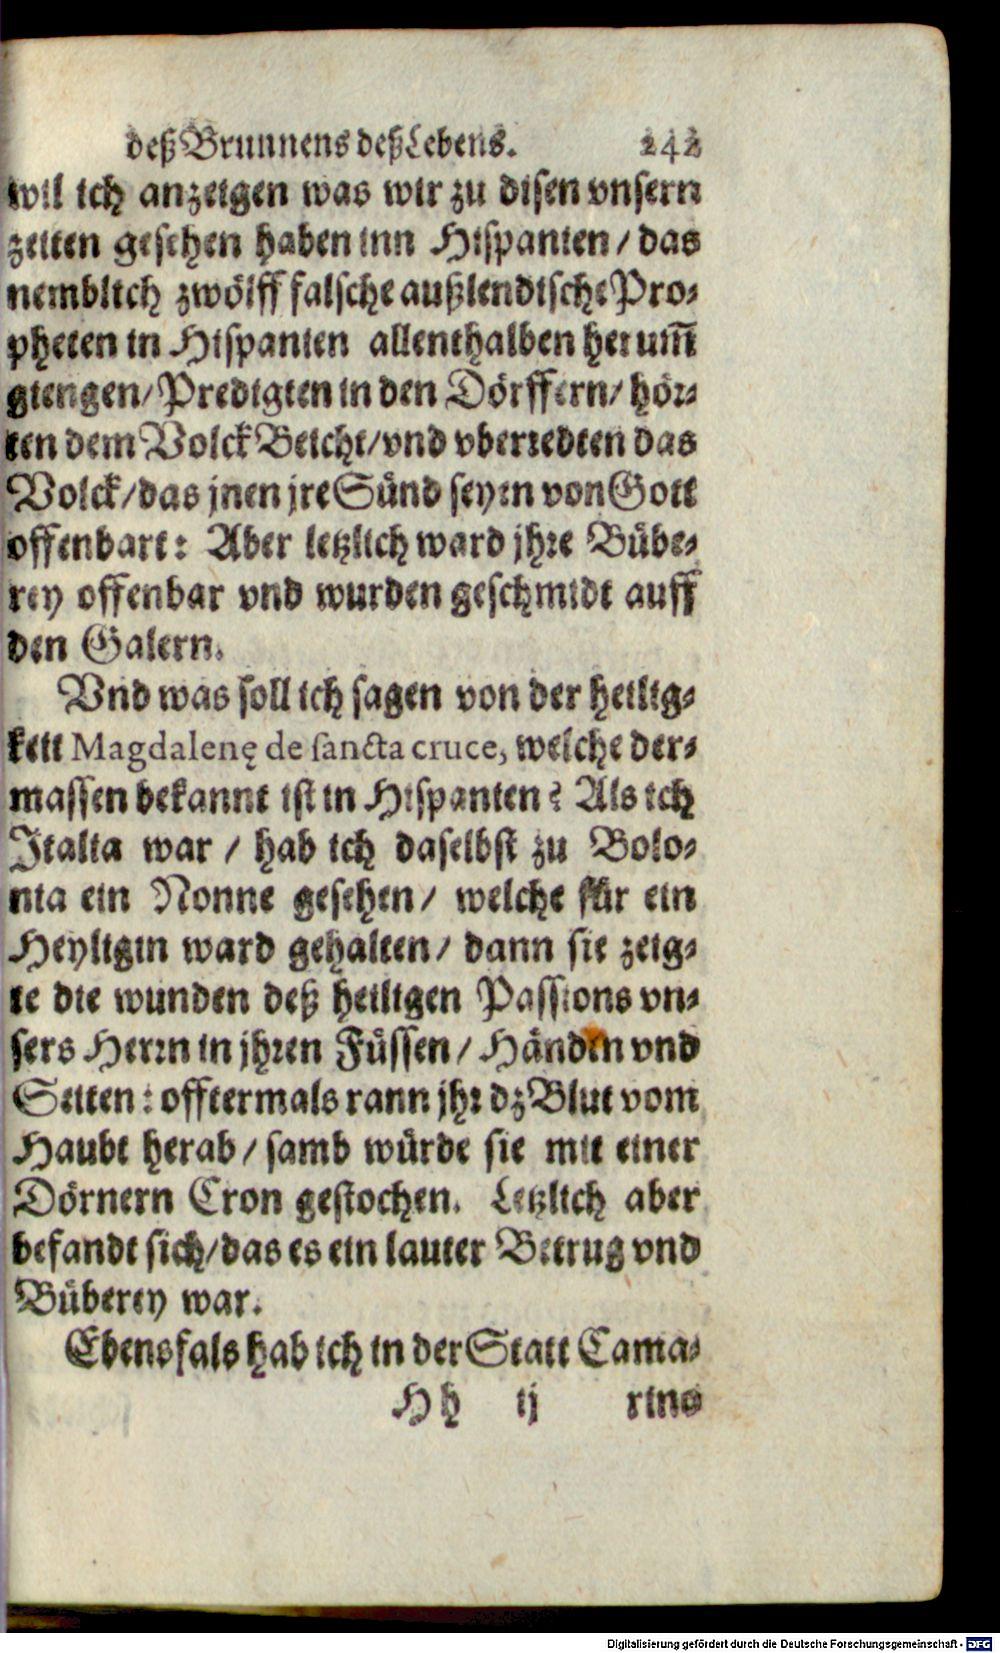 deß Brunnens deß Lebens. 242
wil ich anzeigen was wir zu disen vnsern
zeiten gesehen haben inn Hispanien / das
nemblich zwölff falsche außlendische Pro-
pheten in Hispanien allenthalben herum̃
giengen / Predigten in den Dörffern / hör-
ten dem Volck Beicht / vnd vberredten das
Volck / das jnen jre Sünd seyen von Gott
offenbart: Aber letzlich ward jhre Bübe-
rey offenbar vnd wurden geschmidt auff
den Galern.
Vnd was soll ich sagen von der heilig-
keit Magdalenę de sancta cruce, welche der-
massen bekannt ist in Hispanien? Als ich
Italia war / hab ich daselbst zu Bolo-
nia ein Nonne gesehen / welche für ein
Heyligin ward gehalten / dann sie zeig-
te die wunden deß heiligen Passions vn-
sers Herrn in jhren Füssen / Händen vnd
Seiten: offtermals rann jhr dz Blut vom
Haubt herab / samb würde sie mit einer
Dörnern Cron gestochen. Letzlich aber
befandt sich / das es ein lauter Betrug vnd
Büberey war.
Ebensfals hab ich in der Statt Cama-
Hh ij rins
Digitalisierung gefördert durch die Deutsche Forschungsgemeinschaft - DFG